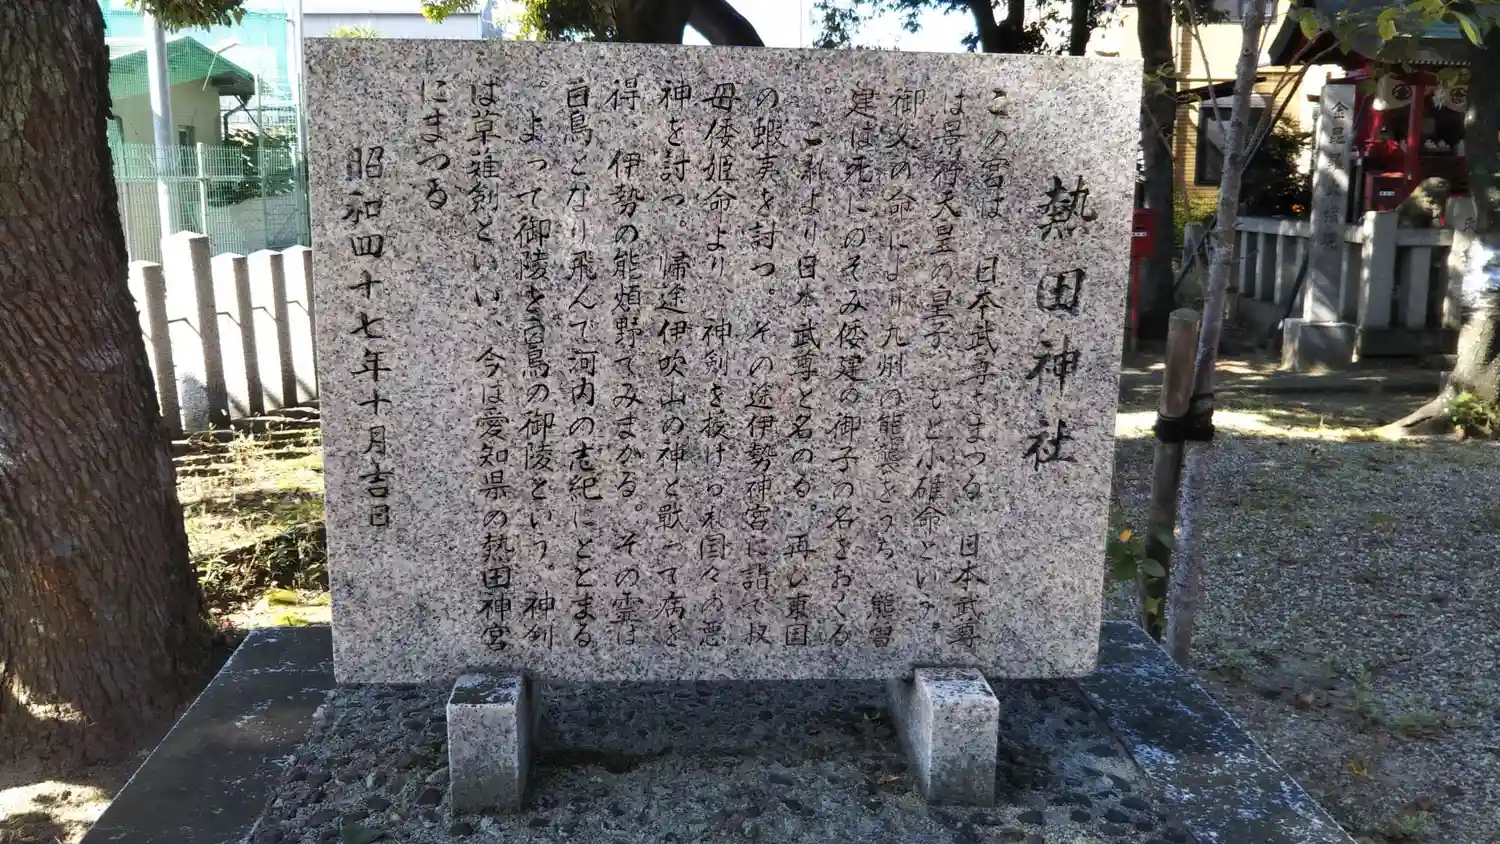 熱田神社
この宮は、日本武尊をまつる。日本武尊
は景行天皇の皇子、もと小碓命という。
御父の命により九州の熊襲をうち、熊曽
建は死にのぞみ倭建の御子の名をおくる
。これより日本武尊と名のる。再び東国
の蝦夷を討つ。その途伊勢神宮に詣で叔
母倭姫命より、神剣を授けられ国々の悪
神を討つ。帰途伊吹山の神と戦って病を
得、伊勢の能煩野でみまかる。その霊は
白鳥となり飛んで河内の志紀にとどまる
。よって御陵を白鳥の御陵という。神剣
は草薙剣といい、今は愛知県の熱田神宮
にまつる
昭和四十七年十月吉日